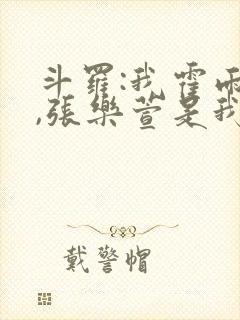 斗羅:我霍雨
,張樂萱是我
戴警帽